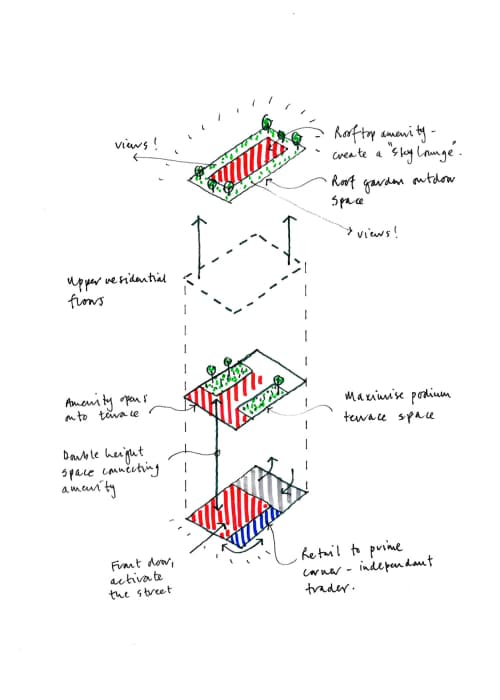 Rooftop amenity -
create a "sky lounge".
views!
Roof garden outdoor
space
views!
Upper residential
floors
Amenity opens
onto terrace
Maximise podium
terrace space
Double height
space connecting
amenity
Front door,
activate
the street
Retail to prime
corner - independant
trader.